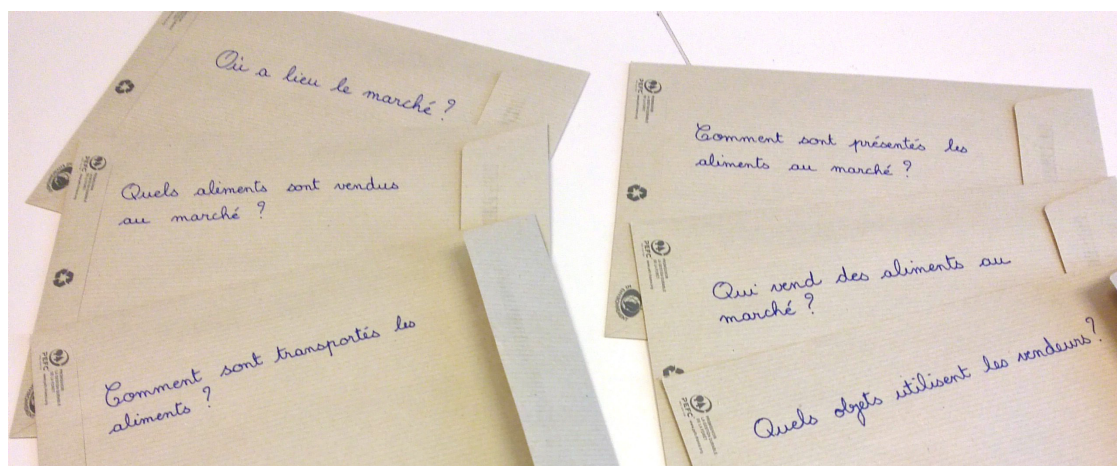 Où a lieu le marché ?
Quels aliments sont vendus
au marché ?
Comment sont transportés les
aliments ?
Comment sont présentés les
aliments au marché ?
Qui vend des aliments au
marché ?
Quels objets utilisent les vendeurs ?
PEFC
PEFC
PEFC
PEFC
PEFC